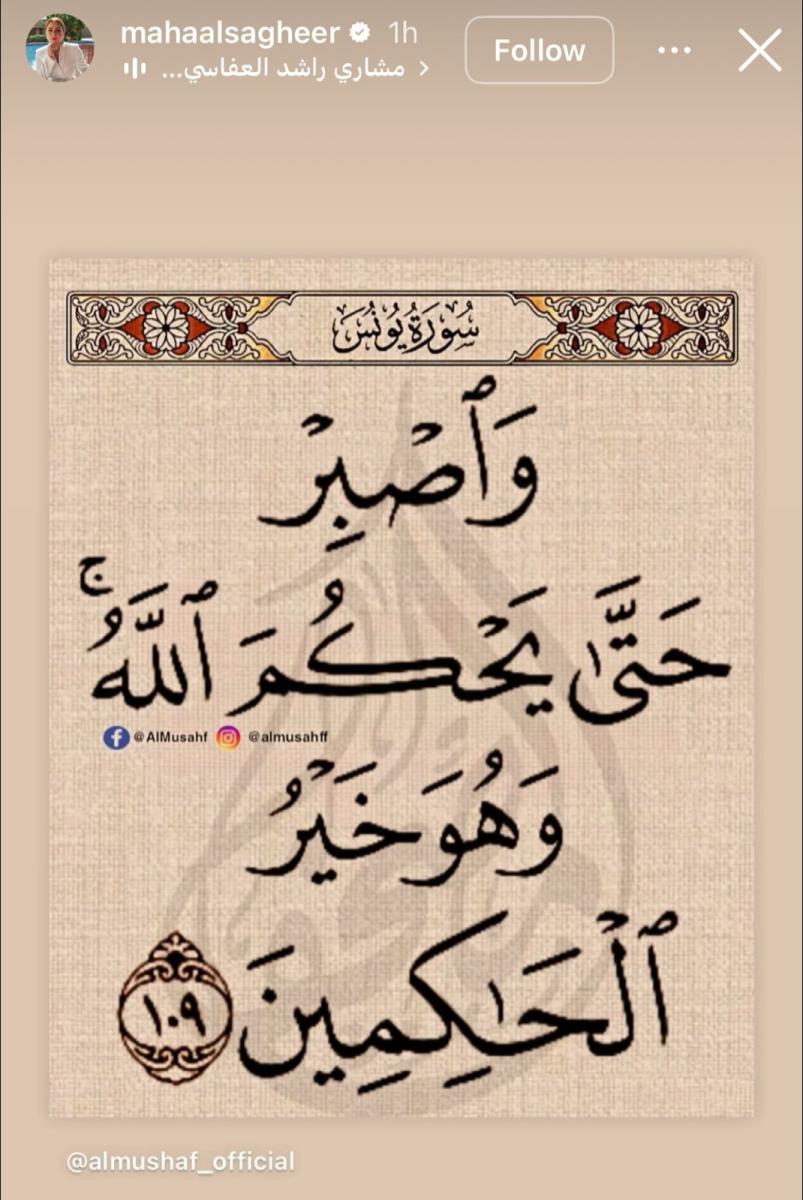 mahaalsagheer 1h
مشاري راشد العفاسي...
Follow
سُورَةُ يُونُسَ
وَٱصْبِرْ
حَتَّىٰ يَحْكُمَ ٱللَّهُ ۚ
@AlMusahf @almusahff
وَهُوَ خَيْرُ
ٱلْحَـٰكِمِينَ ١٠٩
@almushaf_official